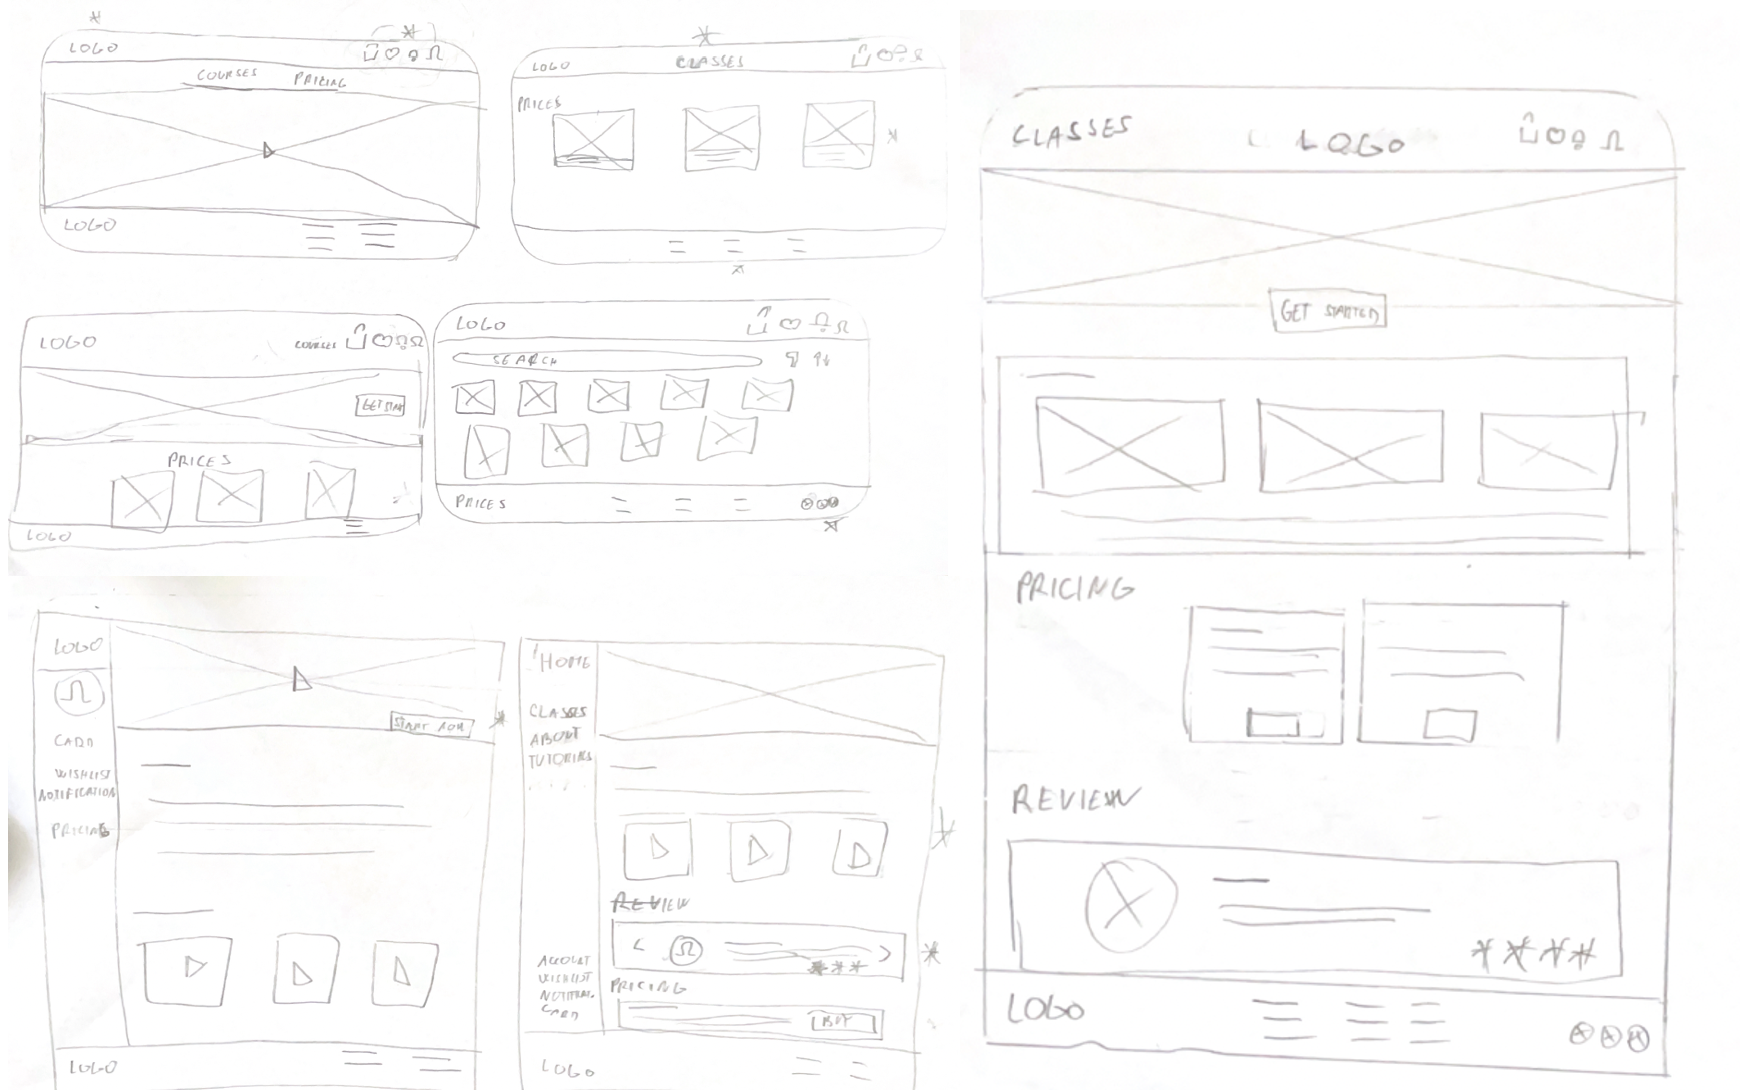 LOGO
COURSES PRICING
LOGO
LOGO CLASSES
PRICES
LOGO COURSES
GET STAR
PRICES
LOGO
LOGO
SEARCH
PRICES
LOGO
CARD
WISHLIST
NOTIFICATION
PRICING
START NOW
LOGO
HOME
CLASSES
ABOUT
TUTORING
REVIEW
ACCOUNT
WISHLIST
CARD
PRICING
BUY
LOGO
CLASSES LOGO
GET STARTED
PRICING
REVIEW
LOGO